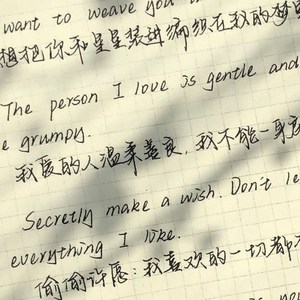 want to weave you
想把你和星星装进
The person I love is gentle and
grumpy.
我爱的人温柔善良，我不能一身
Secretly make a wish. Don't le
everything I like.
偷偷许愿：我喜欢的一切都